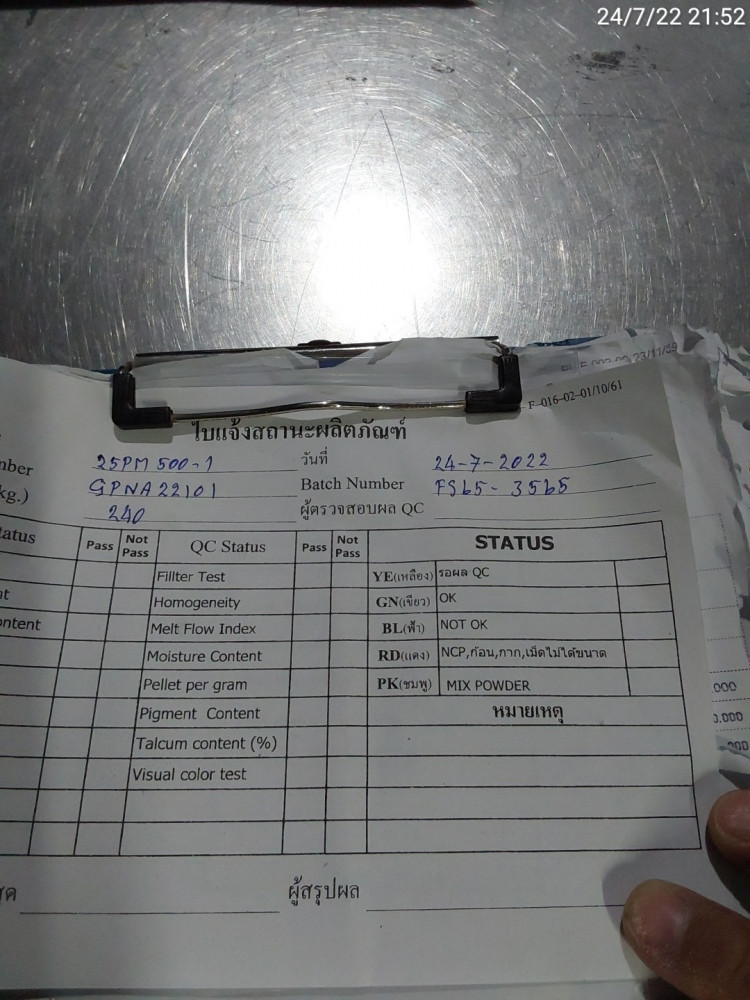 24/7/22 21:52
23/11/59
F-016-02-01/10/61
ใบแจ้งสถานะผลิตภัณฑ์
nber 25PM 500-1 วันที่ 24-7-2022
kg.) GPNA22101 Batch Number FS65-3565
240 ผู้ตรวจสอบผล QC
tatus Pass Not Pass QC Status Pass Not Pass STATUS
Fillter Test YE(เหลือง) รอผล QC
Homogeneity GN(เขียว) OK
ontent Melt Flow Index BL(ฟ้า) NOT OK
Moisture Content RD(แดง) NCP,ก้อน,กาก,เม็ดไม่ได้ขนาด
Pellet per gram PK(ชมพู) MIX POWDER
Pigment Content หมายเหตุ
Talcum content (%)
Visual color test
ผู้สรุปผล
.000
0.000